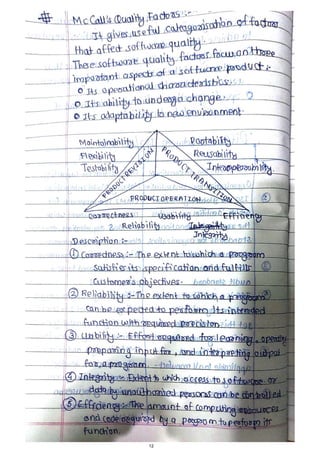 # McCall's Quality Factors :-
It gives useful categorisation of factors
that affect software quality.
These software quality factors focus on three
important aspects of a software product :-
o Its operational characteristics
o Its ability to undergo change
o Its adaptability to new environment
Maintainability Portability
Flexibility Reusability
Testability Interoperability
PRODUCT REVISION PRODUCT TRANSITION
PRODUCT OPERATION
Correctness Usability Efficiency
Reliability Integrity
Integrity
Description :-
① Correctness :- The extent to which a program
satisfies its specification and fulfills
Customer's objectives.
② Reliability :- The extent to which a program
can be expected to perform its intended
function with required precision.
③ Usbility :- Effort required for learning, operating
preparing input for, and interpreting output
for, a program.
④ Integrity :- Extent to which access to software or
data by unauthorised persons can be controlled
⑤ Efficiency :- The amount of computing resources
and code required by a program to perform its
function.
12